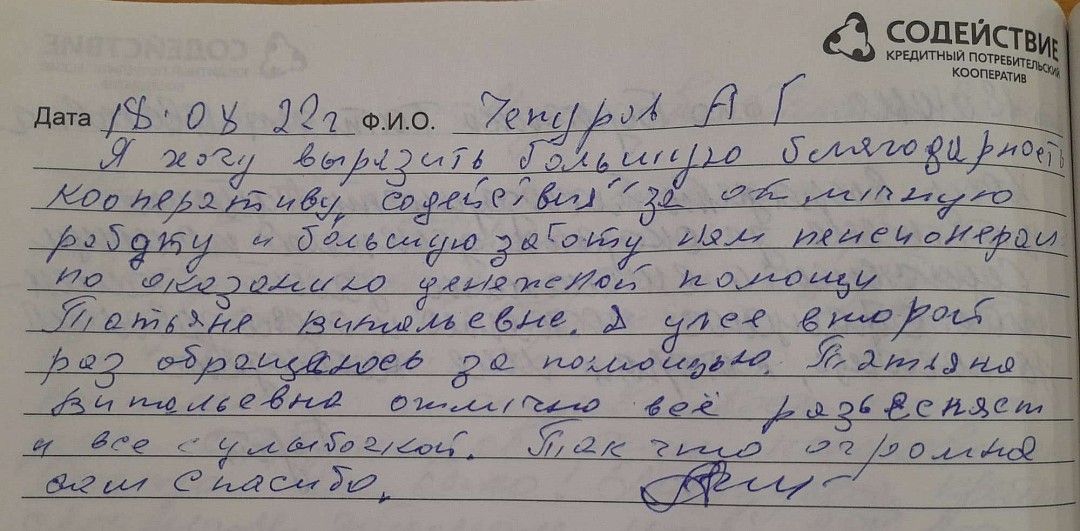 СОДЕЙСТВИЕ
КРЕДИТНЫЙ ПОТРЕБИТЕЛЬСКИЙ
КООПЕРАТИВ
Дата 18.08 22г Ф.И.О. Чепуров А Г
Я хочу вырязить большую блягодарность
кооперативу "содействия" за отличную
работу и большую заботу нам пенсионерам
по оказанию денежной помощи
Татьяне витальевне. Я уже второй
раз обращаюсь за помощью. Татьяна
витальевна отлично всё разьесняет
и все с улыбочкой. Так что огромня
вам спасибо.